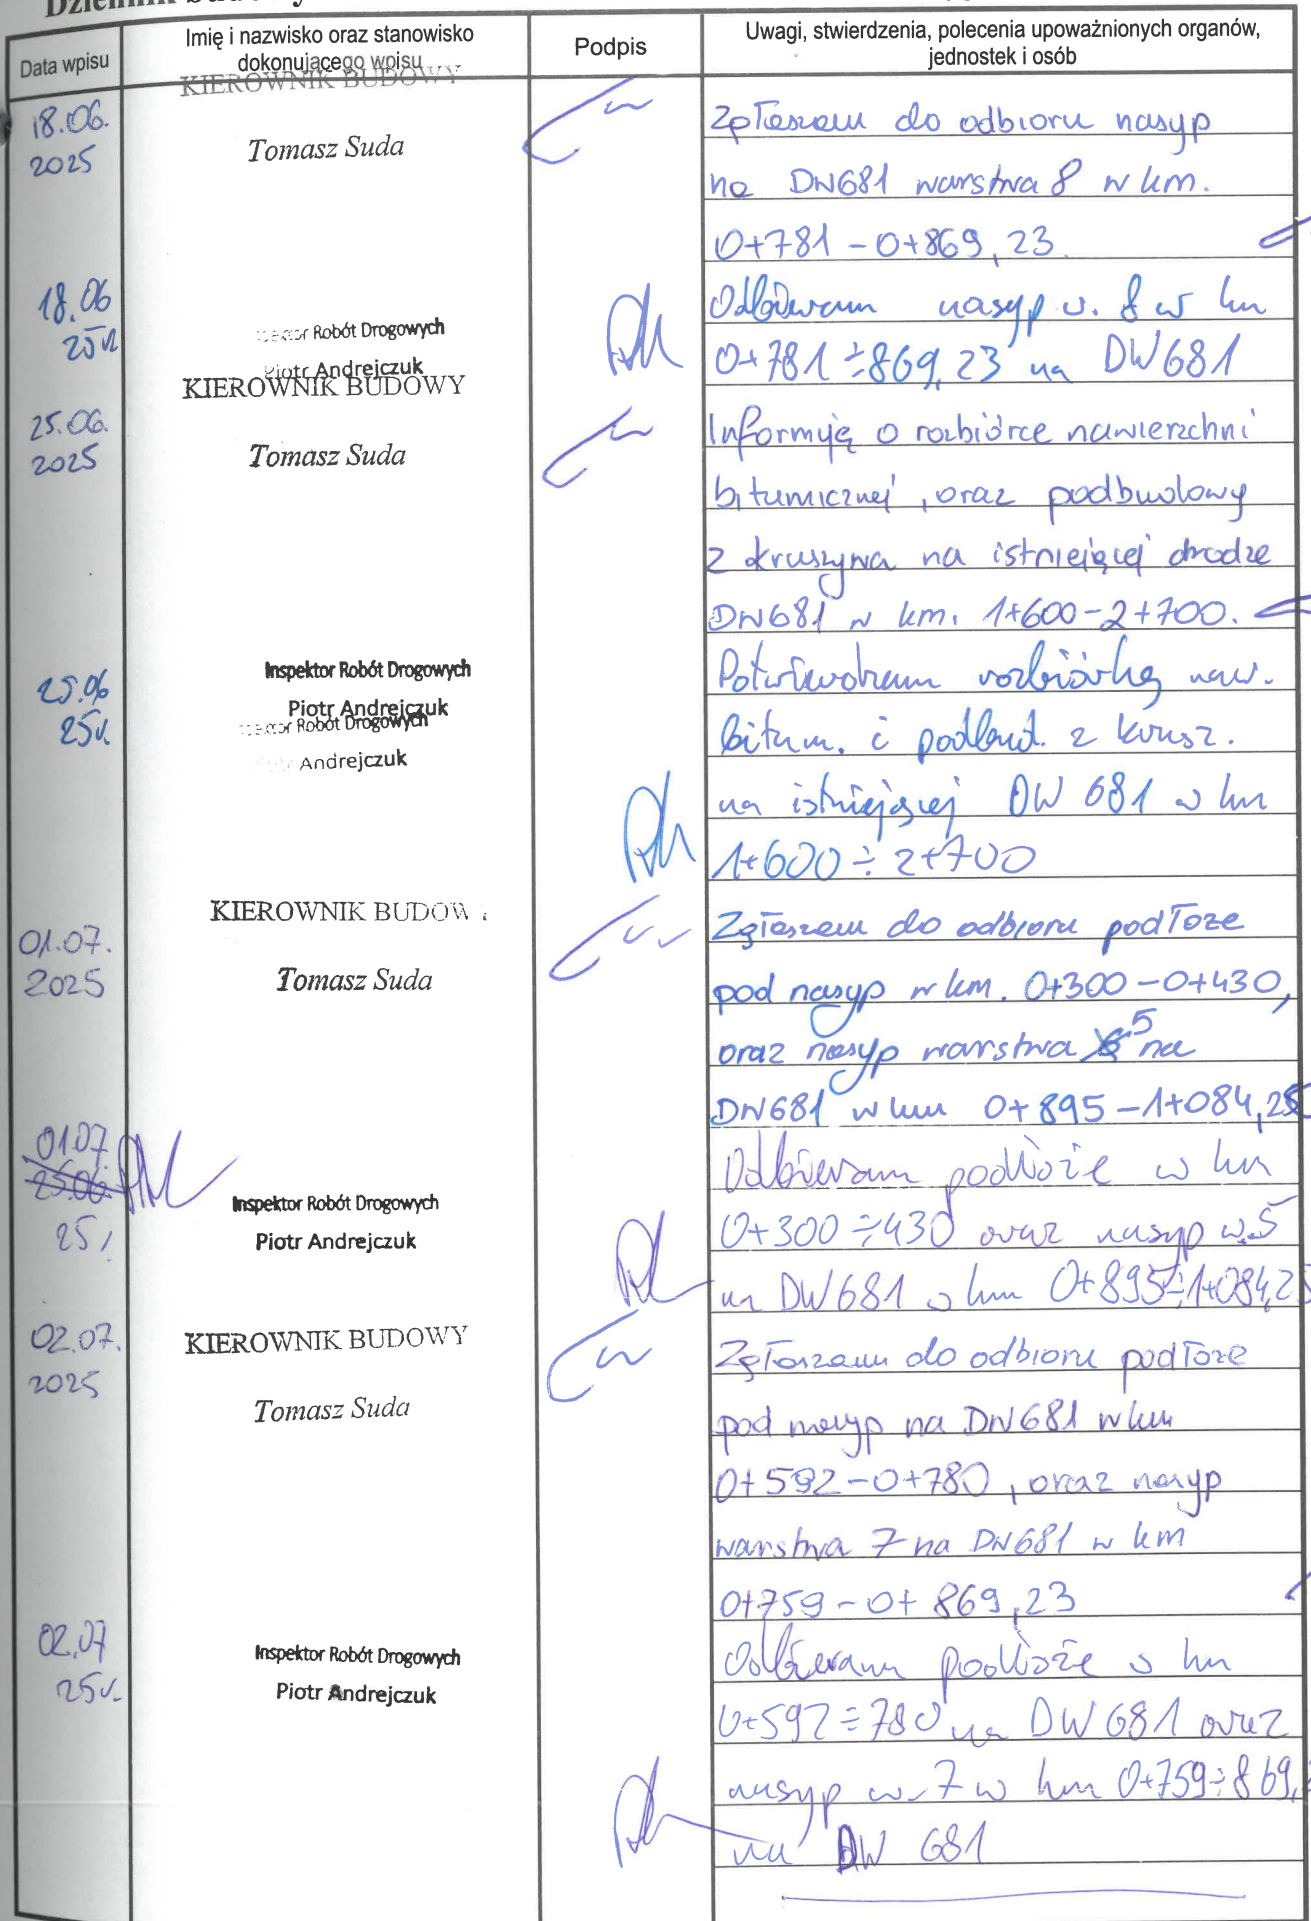 Data wpisu
Imię i nazwisko oraz stanowisko
dokonującego wpisu
Podpis
Uwagi, stwierdzenia, polecenia upoważnionych organów,
jednostek i osób
18.06.
2025
KIEROWNIK BUDOWY
Tomasz Suda
Zgłaszam do odbioru nasyp
na DW681 warstwa 8 w km.
0+781 - 0+869,23.
18.06
25r.
Robót Drogowych
Piotr Andrejczuk
Odbieram nasyp w. 8 w km
0+781 ÷ 869,23 na DW681
25.06.
2025
KIEROWNIK BUDOWY
Tomasz Suda
Informuję o rozbiórce nawierzchni
bitumicznej, oraz podbudowy
z kruszywa na istniejącej drodze
DW681 w km. 1+600-2+700.
25.06
25r.
Inspektor Robót Drogowych
Piotr Andrejczuk
Robót Drogowych
Andrejczuk
Potwierdzam rozbiórkę naw.
bitum. i podbud. z krusz.
na istniejącej DW 681 w km
1+600 ÷ 2+700
01.07.
2025
KIEROWNIK BUDOW
Tomasz Suda
Zgłaszam do odbioru podłoże
pod nasyp w km. 0+300-0+430,
oraz nasyp warstwa 5 na
DW681 w km 0+895-1+084,25
01.07.
25.06.
25r.
Inspektor Robót Drogowych
Piotr Andrejczuk
Odbieram podłoże w km
0+300 ÷ 430 oraz nasyp w.5
na DW681 w km 0+895÷1+084,25
02.07.
2025
KIEROWNIK BUDOWY
Tomasz Suda
Zgłaszam do odbioru podłoże
pod nasyp na DW681 w km
0+592-0+780, oraz nasyp
warstwa 7 na DW681 w km
0+759-0+869,23
02.07
25r.
Inspektor Robót Drogowych
Piotr Andrejczuk
Odbieram podłoże w km
0+592 ÷ 780 na DW681 oraz
nasyp w. 7 w km 0+759÷869,
na DW 681